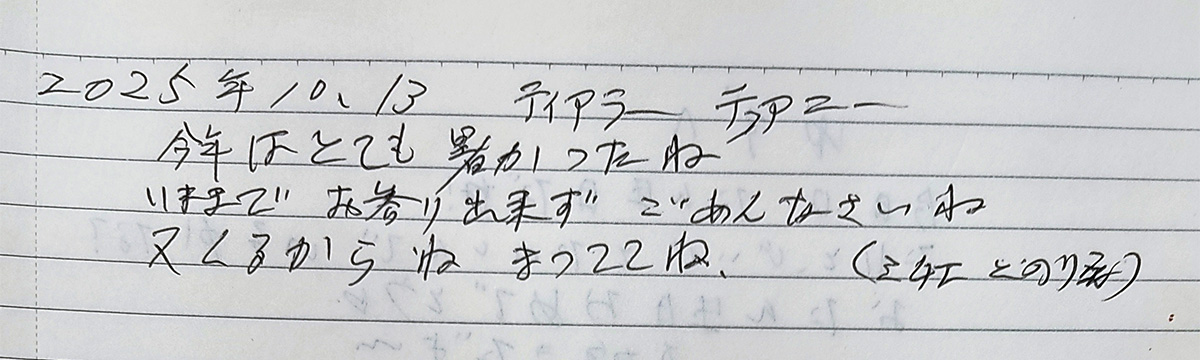 2025年10、13 ティアラー テァアニー
今年はとても暑かったね
いままでお参り出来ずごめんなさいね
又くるからねまっててね、